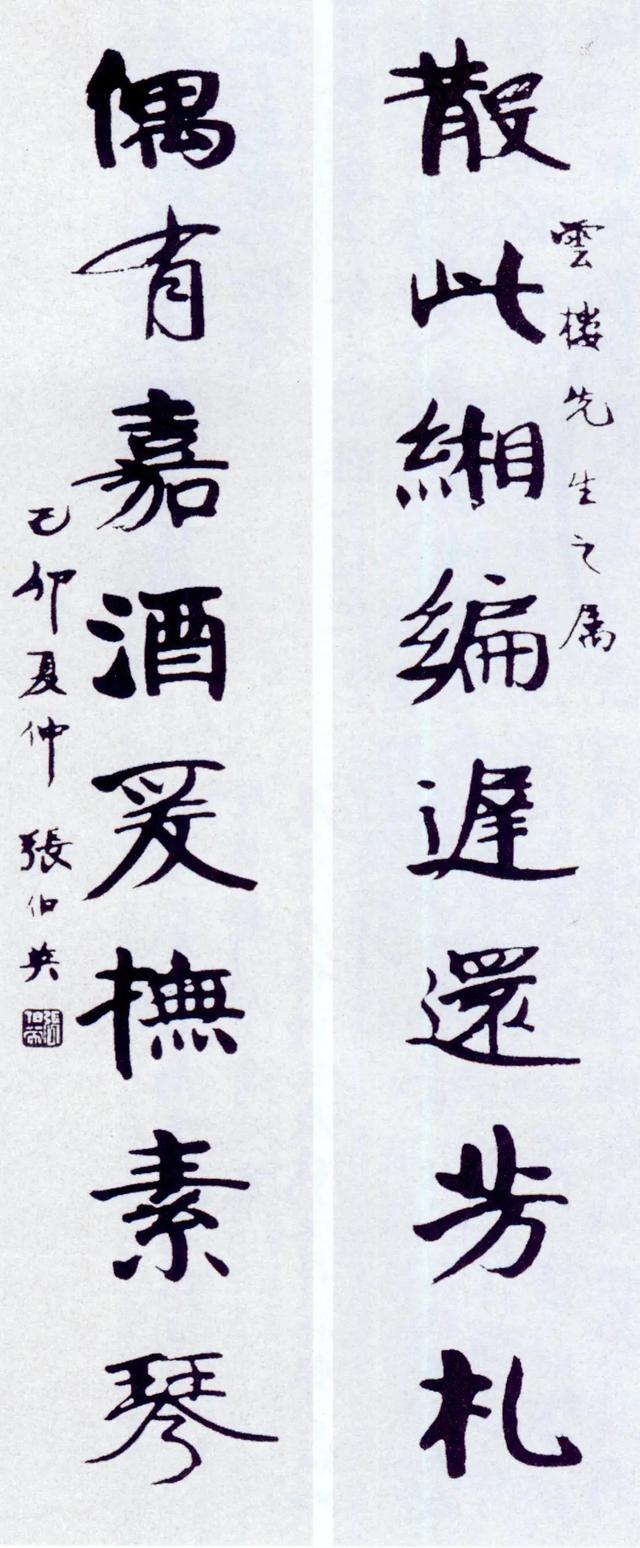 散此緗編遲還芳札
雲樓先生之屬
偶有嘉酒爰撫素琴
己卯夏仲 張伯英